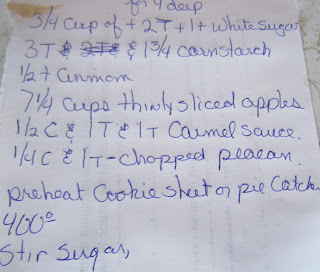 for 4 deep
3/4 Cup of + 2 T + 1 t white sugar
3 T & 2T & & 1 3/4 cornstarch
1/2 t Cinnmom
7 1/4 Cups thinly sliced apples
1/2 C & 1 T & 1 T Carmel sauce.
1/4 C & 1 T - chopped peacan.
preheat Cookie sheet or pie Catche
400°
Stir Sugar,